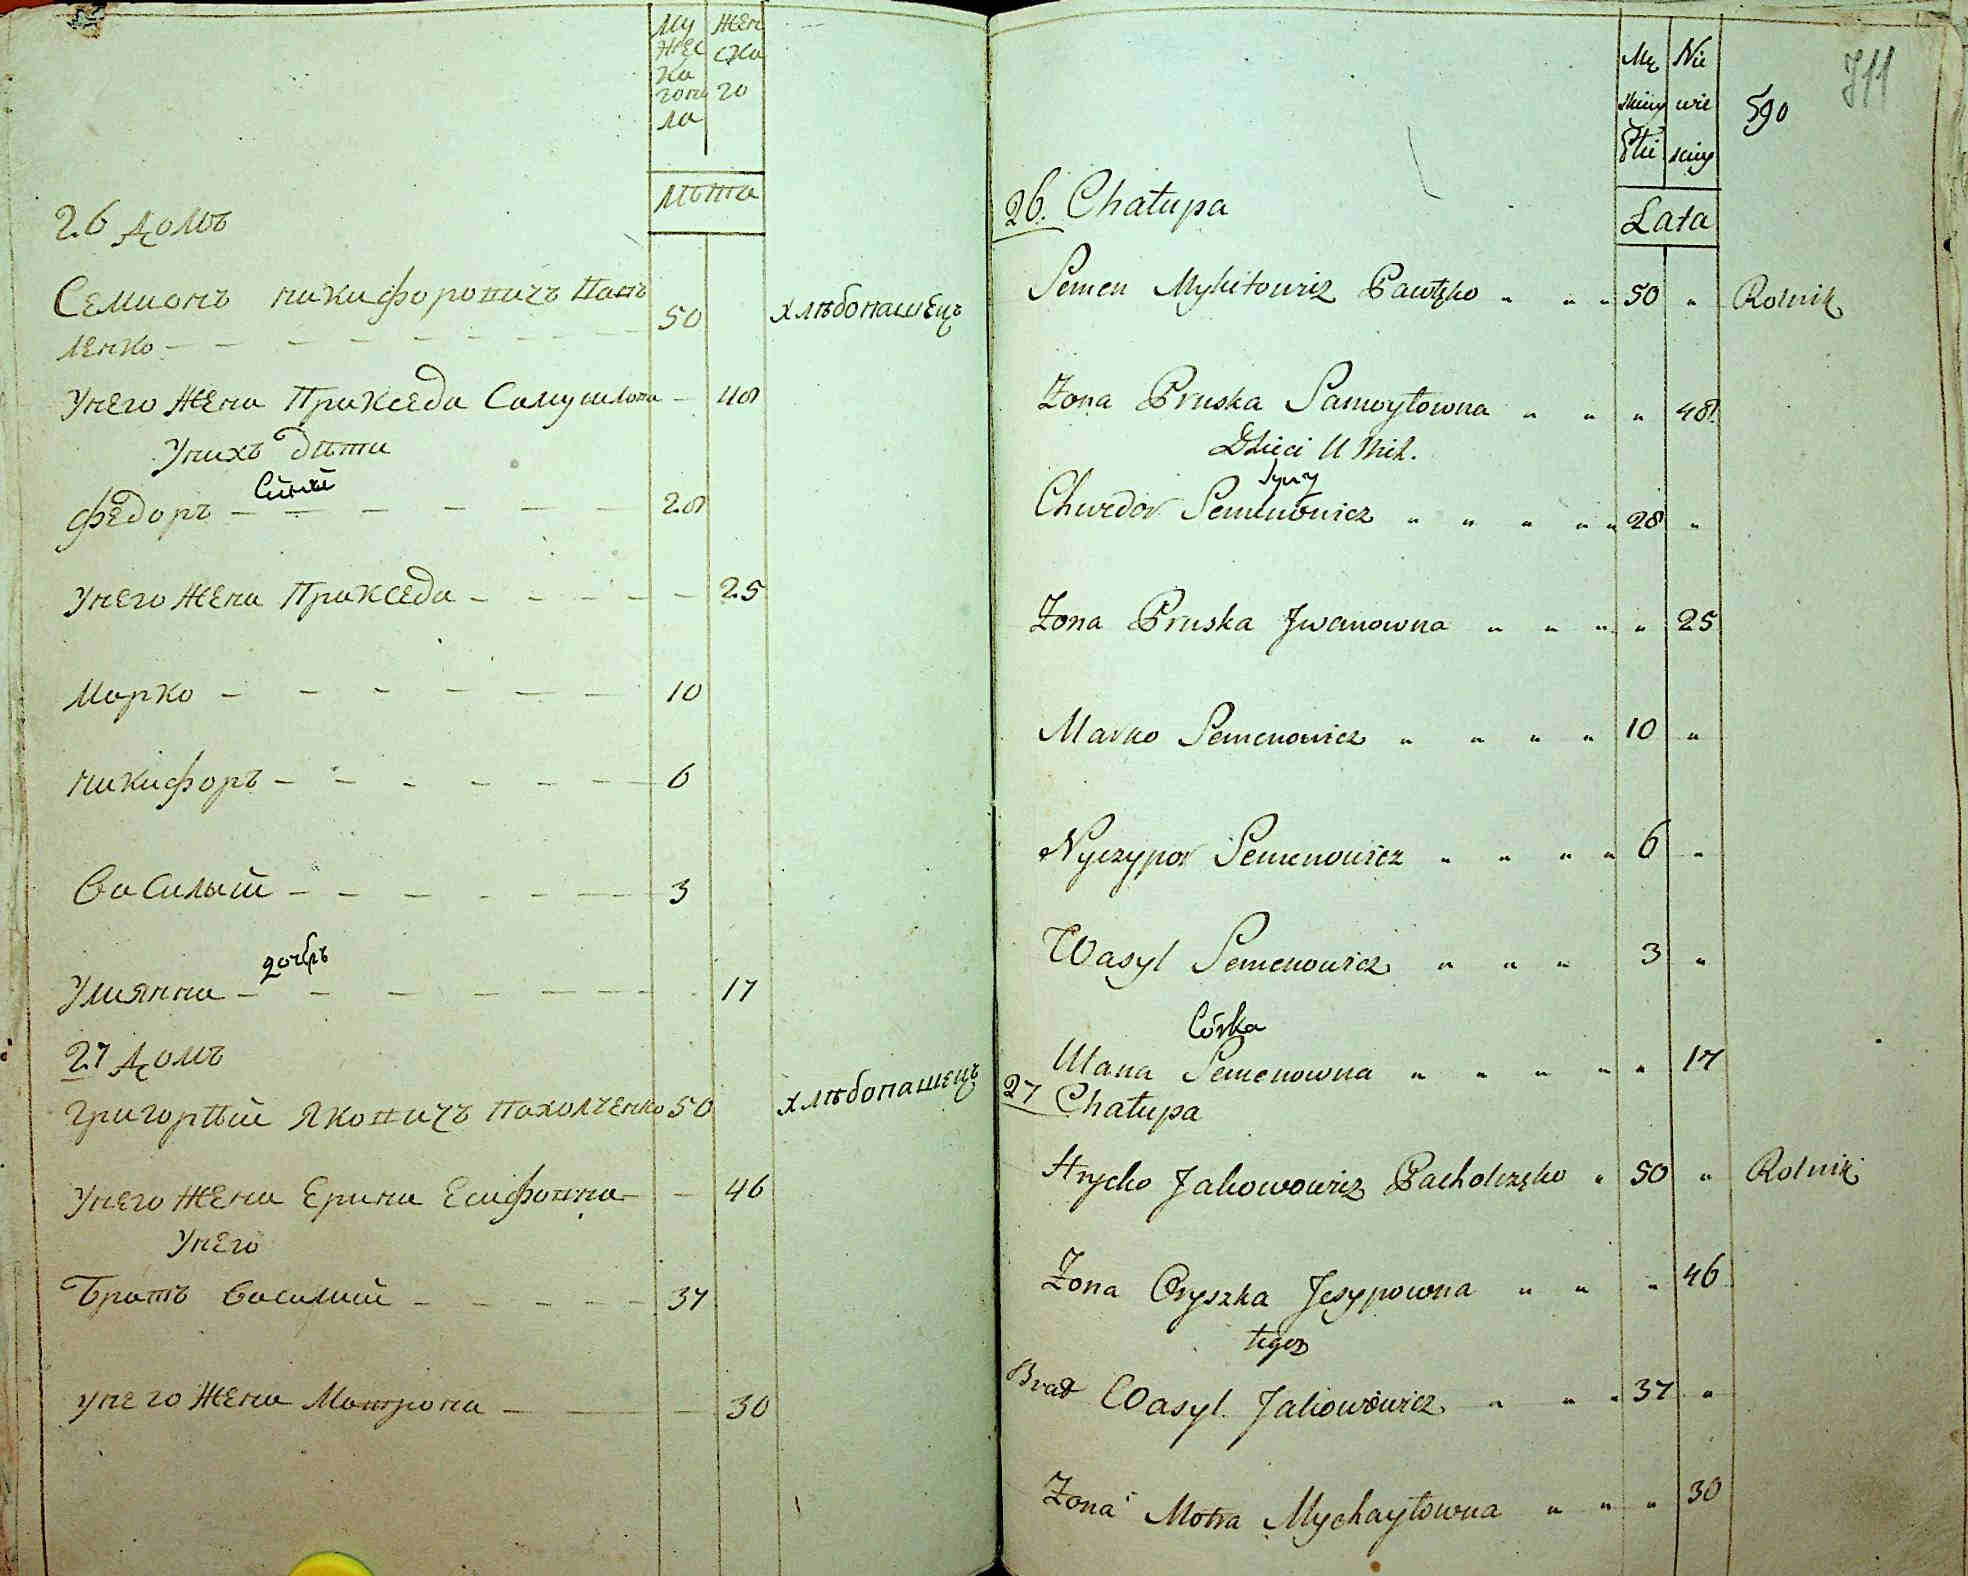 Му
жес
ка
гопо
ла
Жен
ска
го
лѣта
26 домъ
Семионъ никифоровичъ Пав
ленко 50 хлѣбопашецъ
Унего жена Пракседа Самуилова 48
Унихъ дѣти
Сыны
Федоръ 28
Унего жена Пракседа 25
Марко 10
никифоръ 6
Василый 3
дочерь
Улиянна 17
27 домъ
григорѣй Яковичъ пахолченко 50 хлѣбопашецъ
Унего жена Ерина Есифовна 46
Унего
братъ василий 37
унего жена Матрона 30
Mę
skiey
Płci
Nie
wie
sciey
Lata
590
711
26. Chałupa
Semen Mykitowicz Pawłęko 50 " Rolnik
Zona Pruska Samoyłowna " 48
Dzieci U Nich.
Syny
Chwedor Semenowicz 28 "
Zona Pruska Jwanowna " 25
Marko Semenowicz 10 "
Nyczypor Semenowicz 6 "
Wasyl Semenowicz 3 "
Córka
Ulana Semenowna " 17
27 Chałupa
Hrycko Jakowowicz Pacholczęko 50 " Rolnik
Zona Oryszka Jesypowna " 46
tegoz
Brat Wasyl Jakowowicz 37 "
Zona Motra Mychayłowna " 30